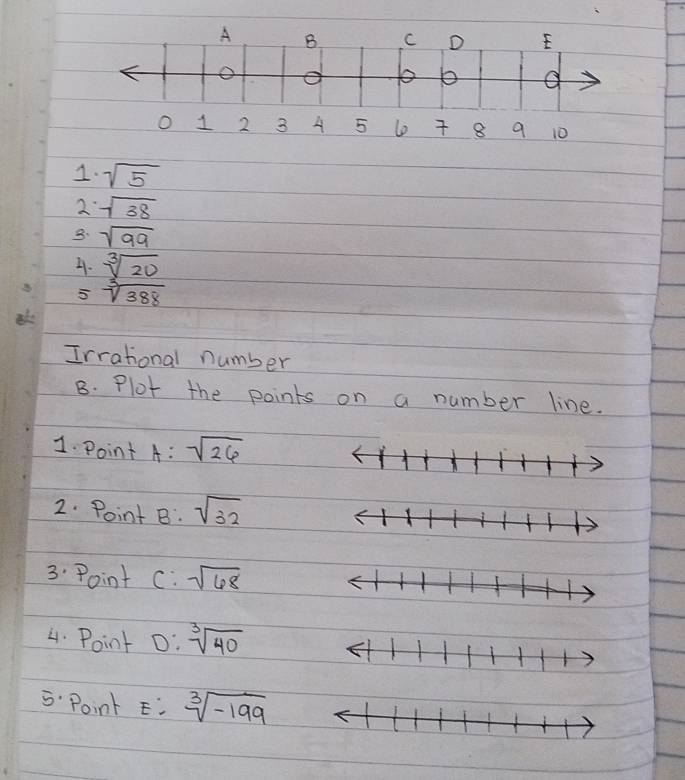 A B C D E
0 1 2 3 4 5 6 7 8 9 10
1. √5
2. √38
3. √99
4. ∛20
5 ∛388
Irrational number
B. Plot the points on a number line.
1. Point A: √26
2. Point B: √32
3. Point C: √68
4. Point D: ∛40
5. Point E: ∛-199